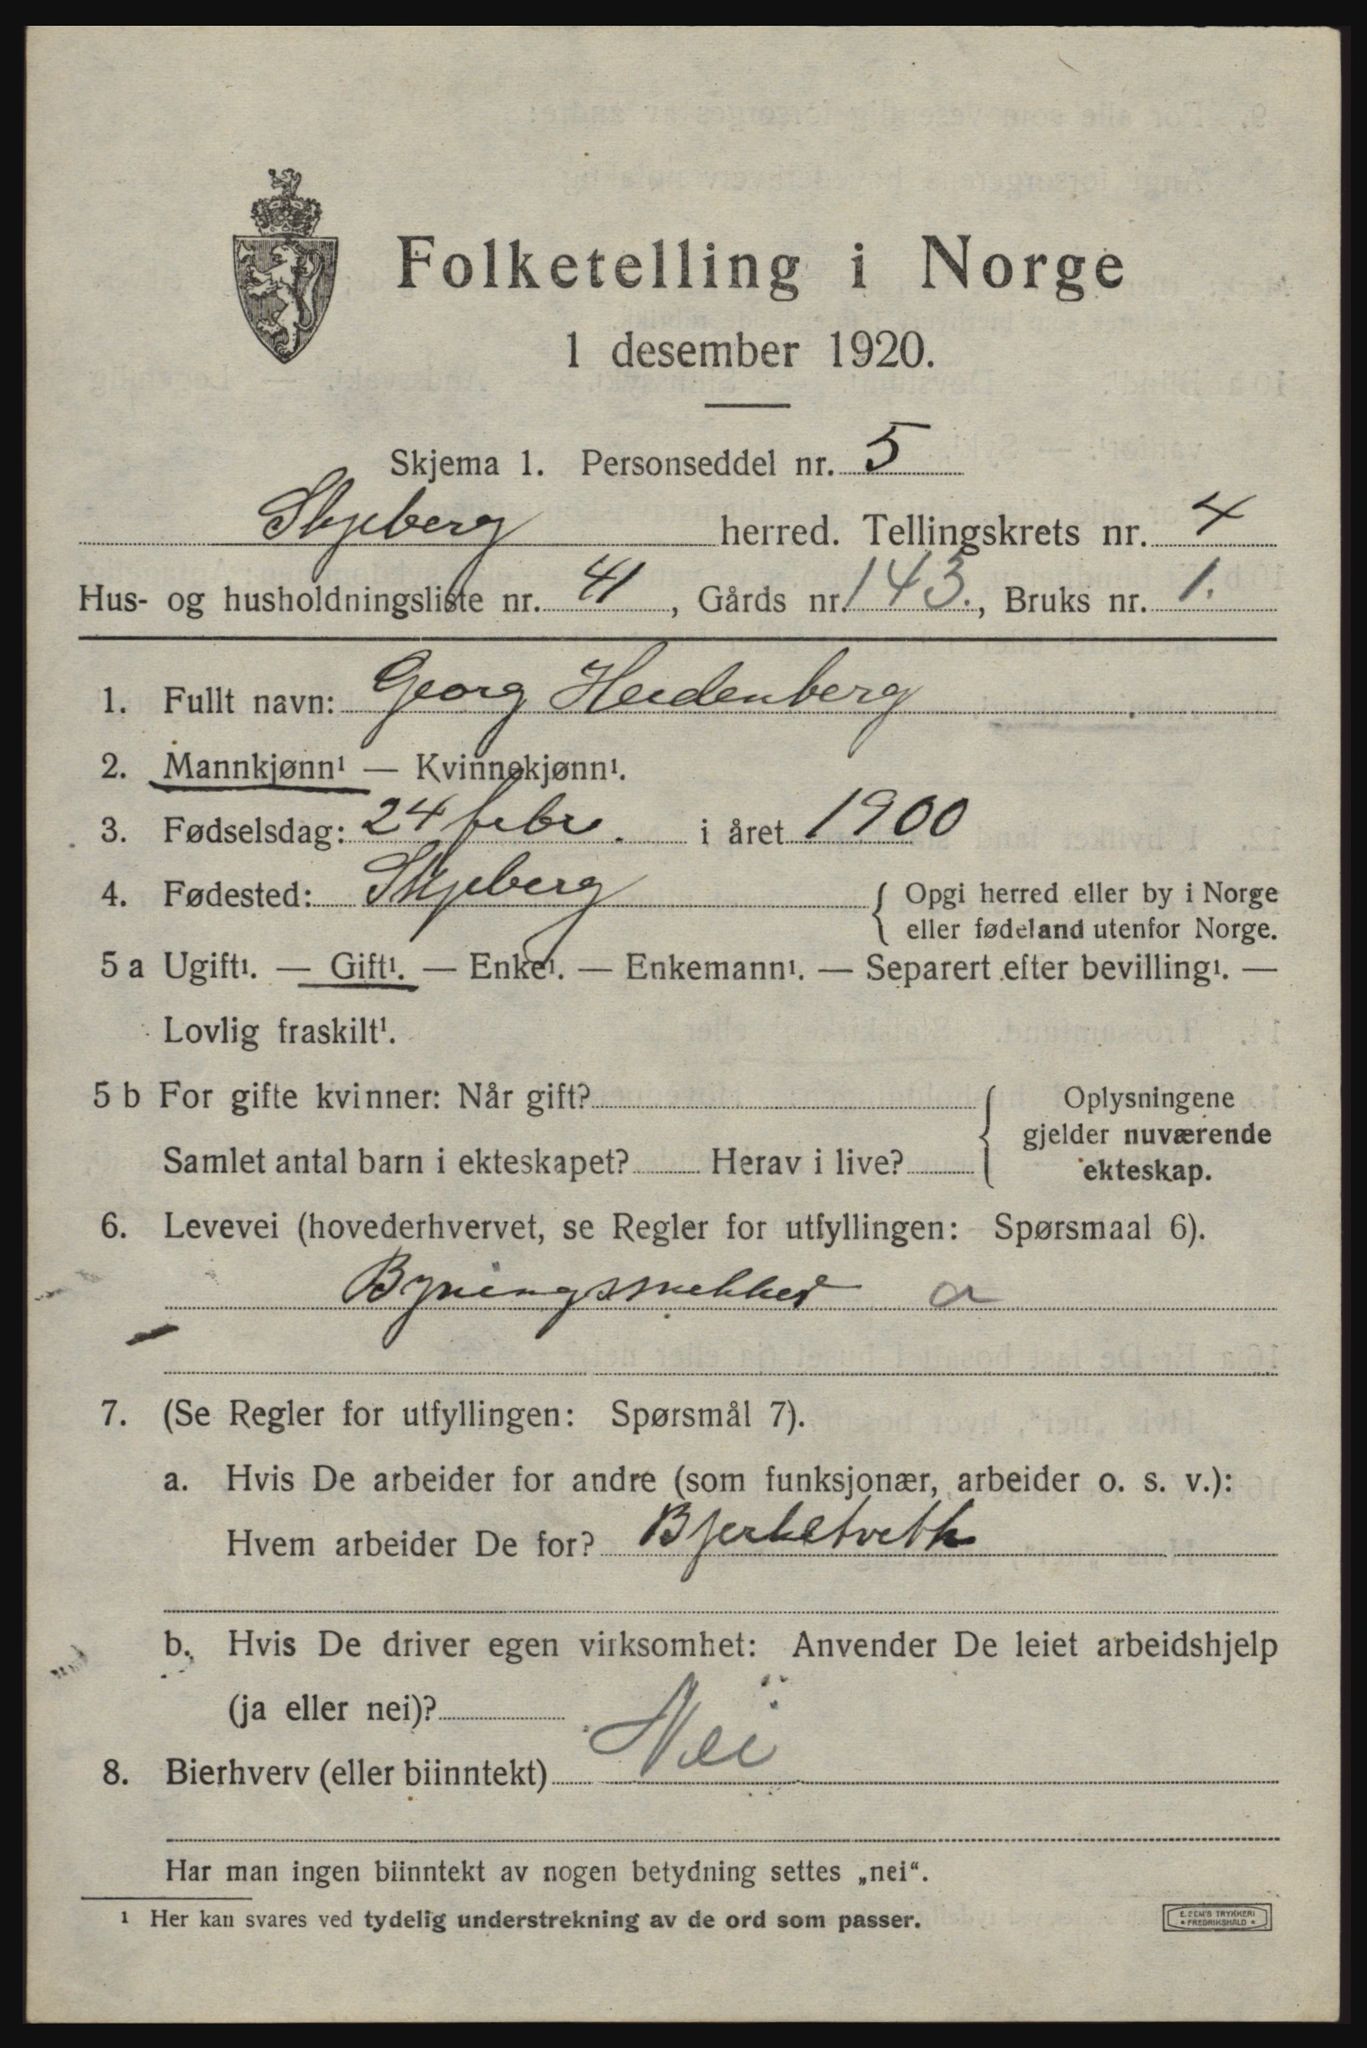 Folketelling i Norge
1 desember 1920.
Skjema 1. Personseddel nr. 5
Skjeberg herred. Tellingskrets nr. 4
Hus- og husholdningsliste nr. 41, Gårds nr. 143., Bruks nr. 1.
1. Fullt navn: Georg Heidenberg
2. Mannkjønn¹ — Kvinnekjønn¹.
3. Fødselsdag: 24 febr. i året 1900
4. Fødested: Skjeberg { Opgi herred eller by i Norge
eller fødeland utenfor Norge.
5 a Ugift¹. — Gift¹. — Enke¹. — Enkemann¹. — Separert efter bevilling¹. —
Lovlig fraskilt¹.
5 b For gifte kvinner: Når gift? { Oplysningene
gjelder nuværende
Samlet antal barn i ekteskapet? Herav i live? ekteskap.
6. Levevei (hovederhvervet, se Regler for utfyllingen: Spørsmaal 6).
Bynings snekker a
7. (Se Regler for utfyllingen: Spørsmål 7).
a. Hvis De arbeider for andre (som funksjonær, arbeider o. s. v.):
Hvem arbeider De for? Bjerketveth
b. Hvis De driver egen virksomhet: Anvender De leiet arbeidshjelp
(ja eller nei)?
8. Bierhverv (eller biinntekt) Nei
Har man ingen biinntekt av nogen betydning settes „nei“.
¹ Her kan svares ved tydelig understrekning av de ord som passer.
E. SEM'S TRYKKERI
• FREDRIKSHALD •